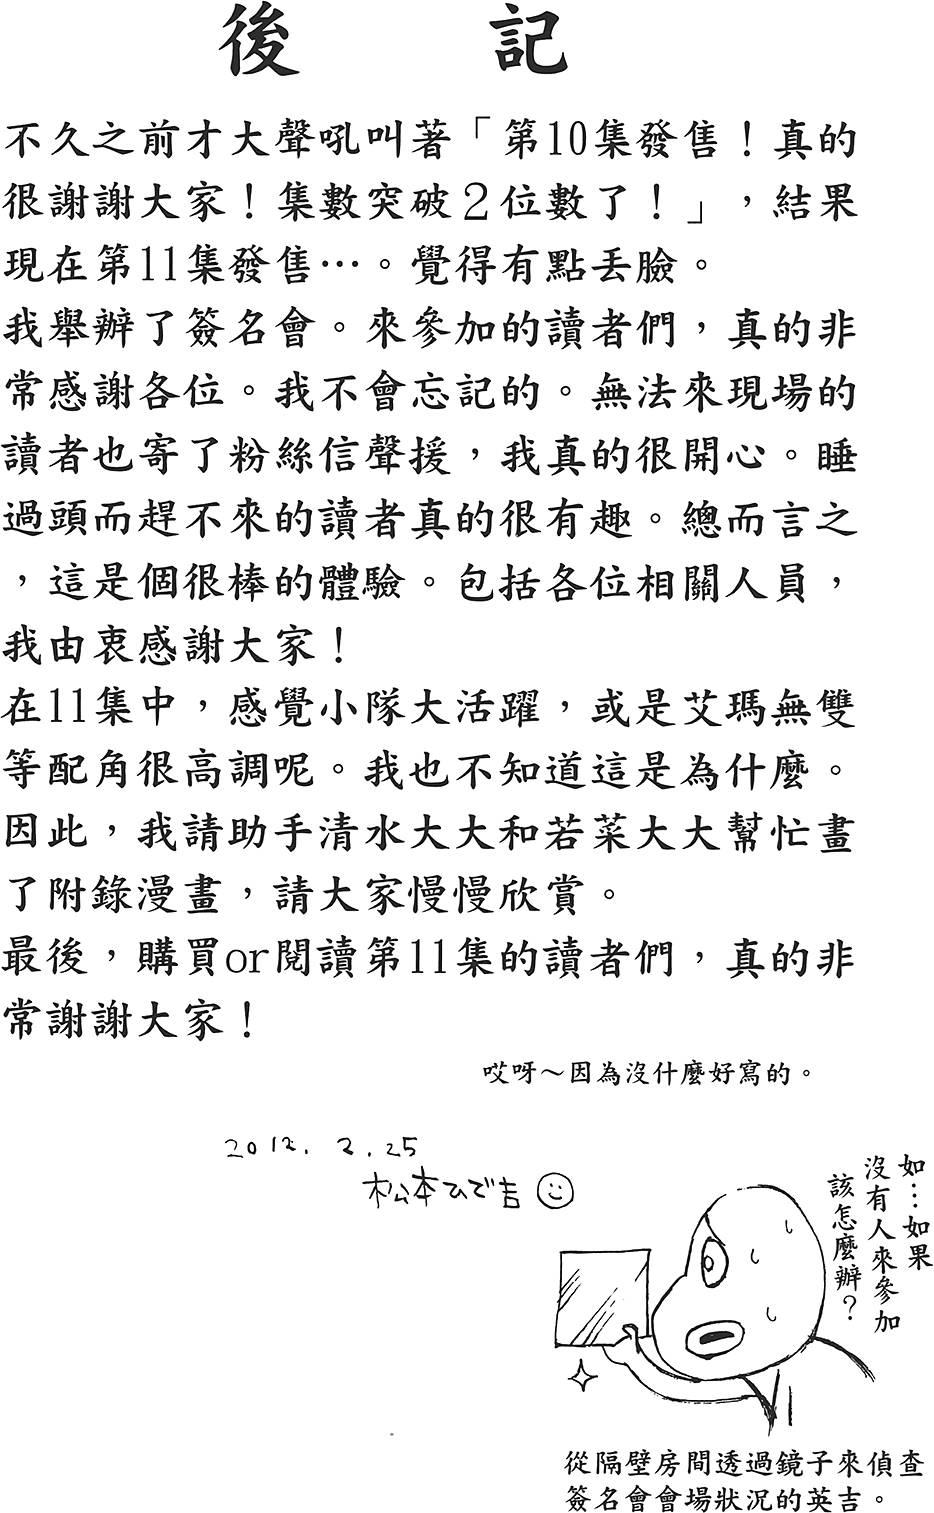 後記
不久之前才大聲吼叫著「第10集發售！真的
很謝謝大家！集數突破2位數了！」，結果
現在第11集發售…。覺得有點丟臉。
我舉辦了簽名會。來參加的讀者們，真的非
常感謝各位。我不會忘記的。無法來現場的
讀者也寄了粉絲信聲援，我真的很開心。睡
過頭而趕不來的讀者真的很有趣。總而言之
，這是個很棒的體驗。包括各位相關人員，
我由衷感謝大家！
在11集中，感覺小隊大活躍，或是艾瑪無雙
等配角很高調呢。我也不知道這是為什麼。
因此，我請助手清水大大和若菜大大幫忙畫
了附錄漫畫，請大家慢慢欣賞。
最後，購買or閱讀第11集的讀者們，真的非
常謝謝大家！
哎呀～因為沒什麼好寫的。
2012. 2. 25
松本ひで吉
如…如果
沒有人來參加
該怎麼辦？
從隔壁房間透過鏡子來偵查
簽名會會場狀況的英吉。